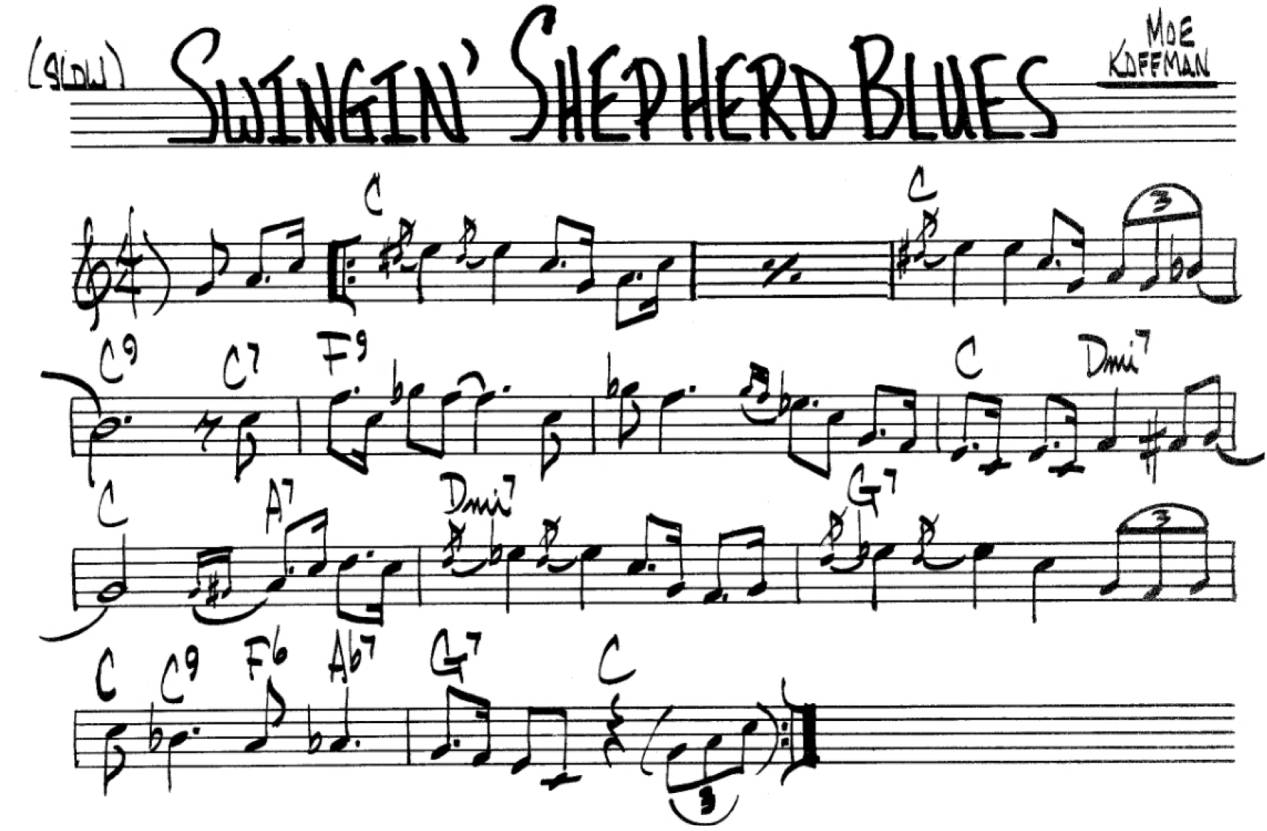 (SLOW) SWINGIN' SHEPHERD BLUES MOE
KOFFMAN
C C
4
4 3
C9 C7 F9 C Dmi7
C A7 Dmi7 G7
3
C C9 F6 Ab7 G7 C
3